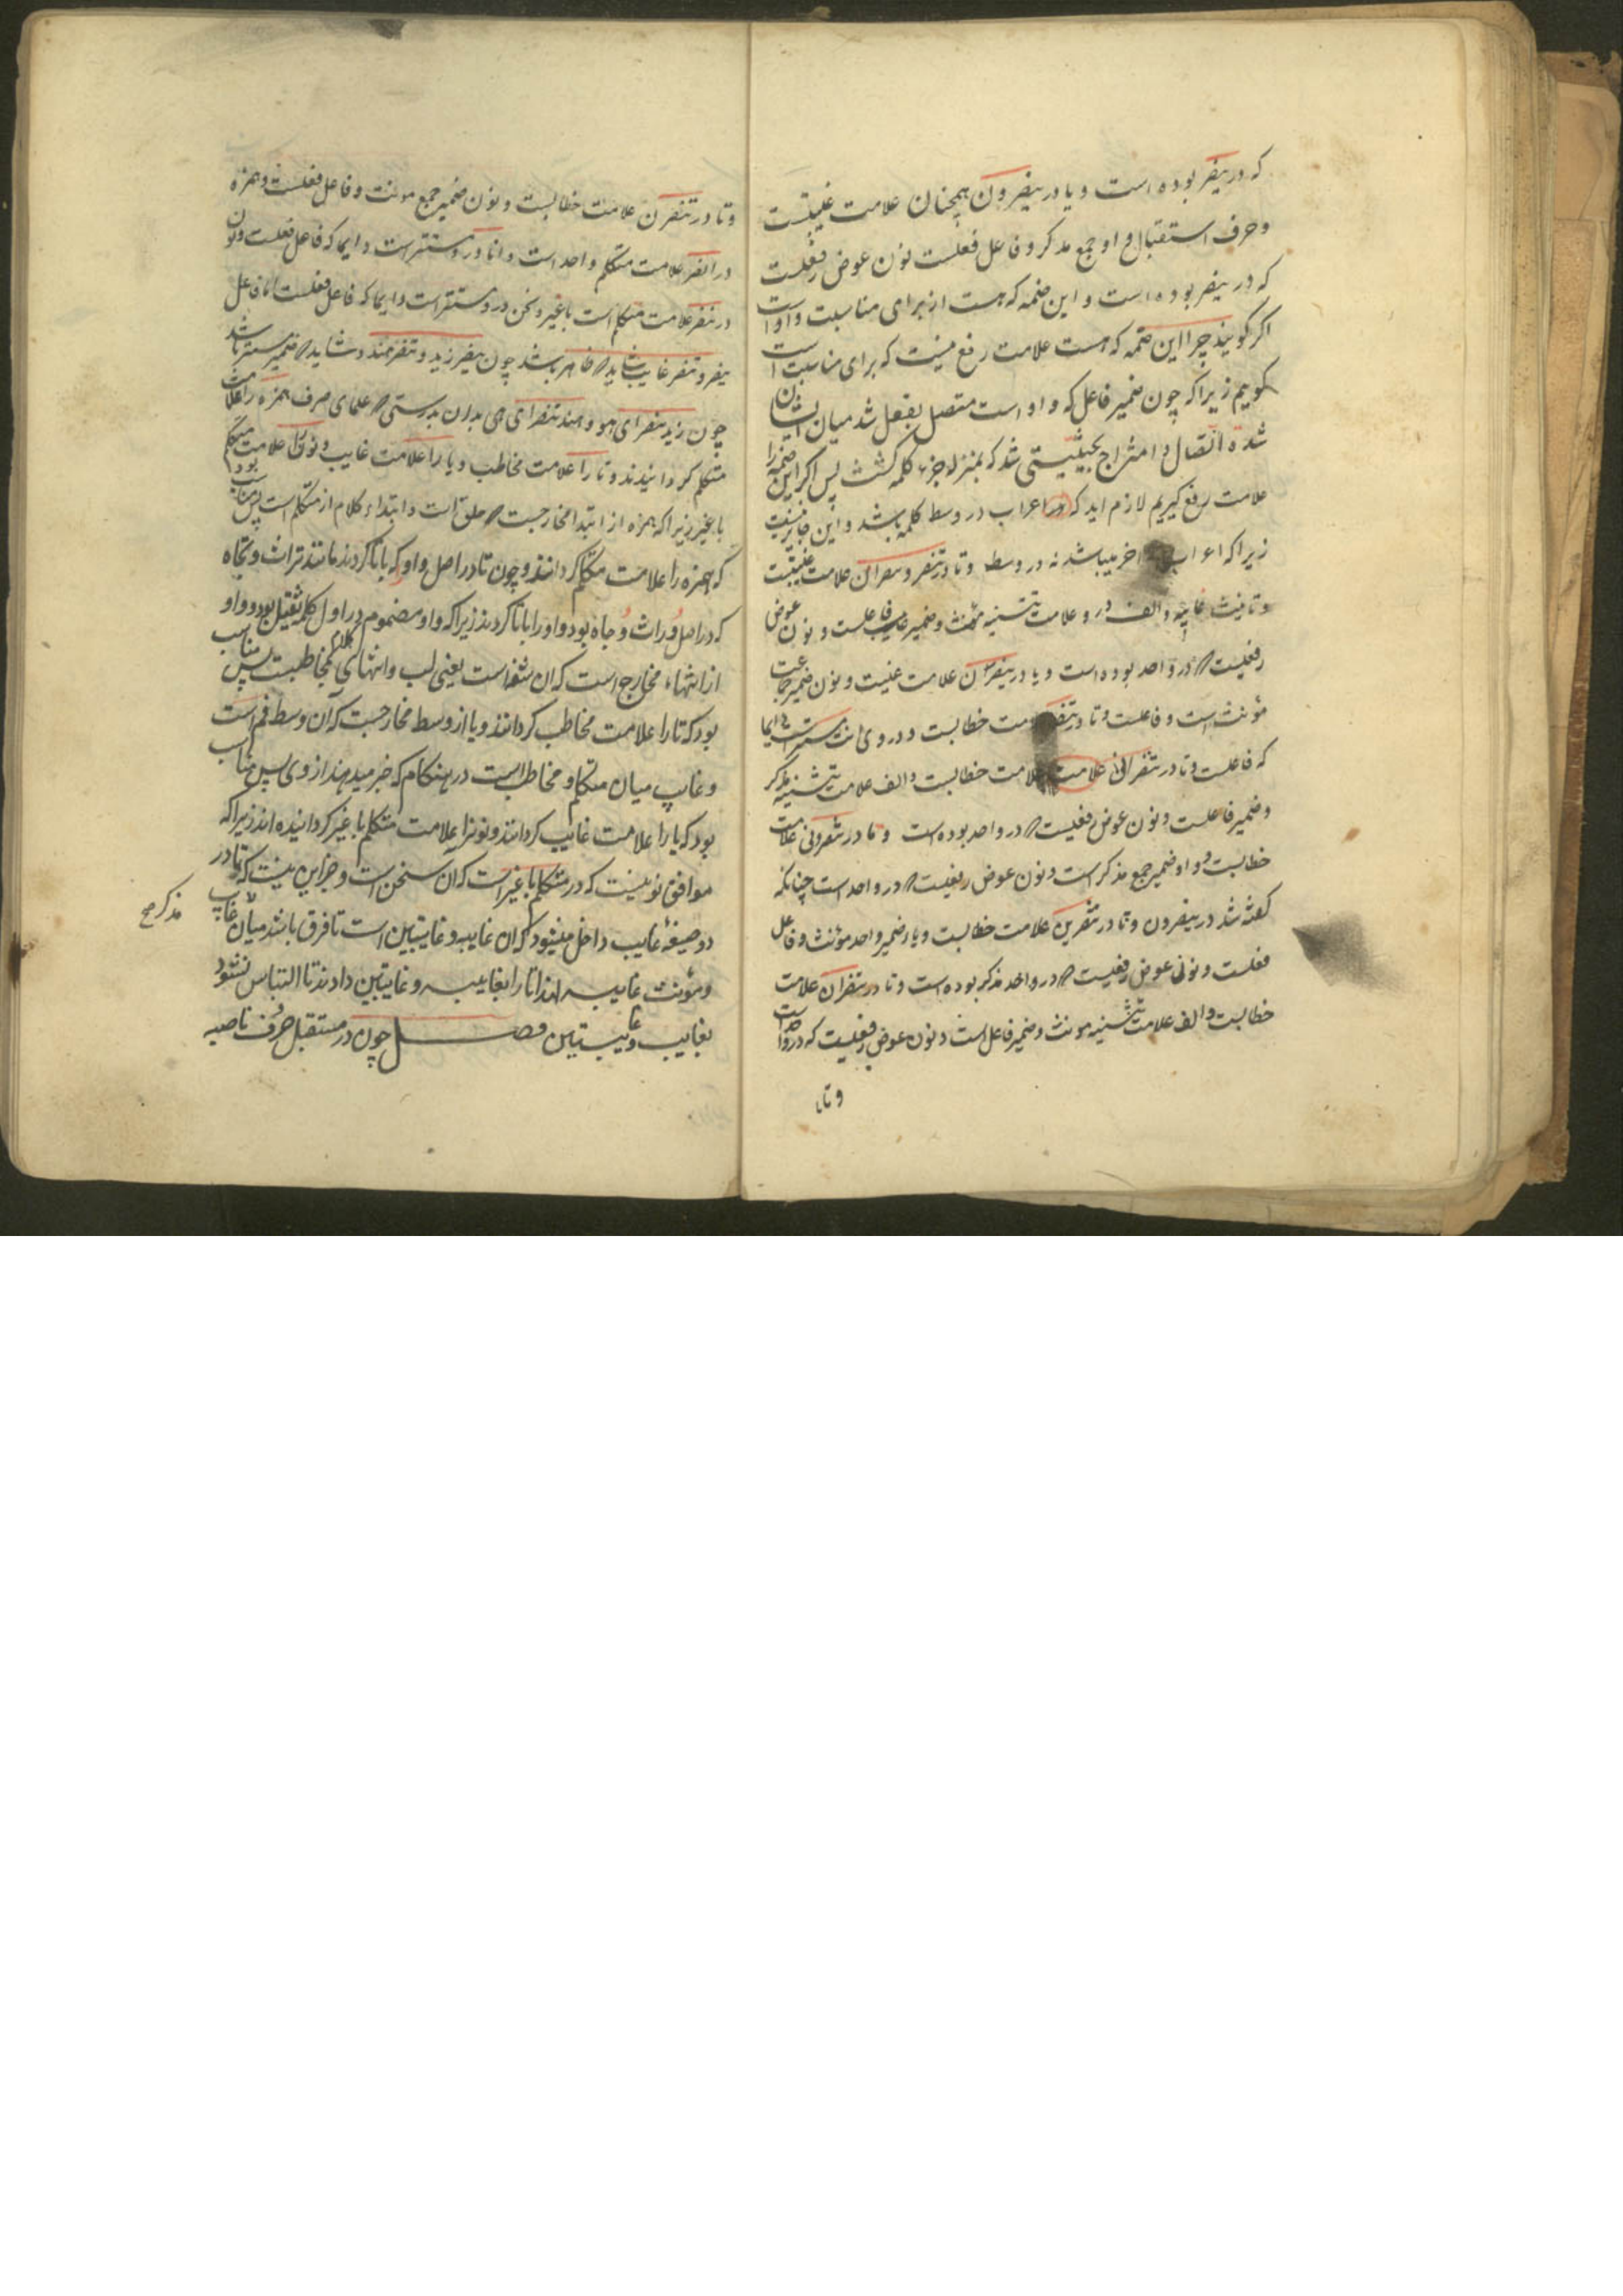 که در ینصر بوده است و یا در ینصرون همچنان علامت غیبتست
و حرف استقبال و او جمع مذکر و فاعل فعلست نون عوض رفعست
که در ینصر بوده است و این ضمه که هست از برای مناسبت واو است
اکر کویند چرا این ضمه که هست علامت رفع نیست که برای مناسبت است
کویم زیراکه چون ضمیر فاعل که واو است متصل بفعل شد میان ایشان
شدة اتصال و امتزاج بحیثیتی شد که بمنزله جزء کلمه کشت پس اکر این ضمه را
علامت رفع کیریم لازم اید که در اعراب در وسط کلمه باشد و این جایز نیست
زیراکه اعراب اخر میباشد نه در وسط و تا در تنصر و تنصران علامت غیبتست
و تانیث غایبه و الف درو علامت تثنیه مؤنث و ضمیر فاعلست و نون عوض
رفعیست که در واحد بوده است و یا در ینصرن علامت غیبت و نون ضمیر جماعت
مؤنث است و فاعلست و تا در تنصر علامت خطابست و در وی انت مستتر است دایما
که فاعلست و تا در تنصران علامت علامت خطابست و الف علامت تثنیه مذکر
و ضمیر فاعلست و نون عوض رفعیست که در واحد بوده است و تا در تنصرون علامت
خطابست و واو ضمیر جمع مذکر است و نون عوض رفعیست که در واحد است چنانکه
کفته شد در ینصرون و تا در تنصرین علامت خطابست و یا ضمیر واحد مؤنث و فاعل
فعلست و نون عوض رفعیست که در واحد مذکر بوده است و تا در تنصران علامت
خطابست و الف علامت تثنیه مونث و ضمیر فاعل است و نون عوض رفعیست که در واحد است
و تا
و تا در تنصرن علامت خطابست و نون ضمیر جمع مونث و فاعل فعلست و همزه
در انصر علامت متکلم واحد است و انا در و مستتر است دایما که فاعل فعلست و نون
در ننصر علامت متکلم است با غیر و نحن در و مستتر است دایما که فاعل فعلست اما فاعل
ینصر و تنصر غایب شاید که ظاهر باشد چون ینصر زید و تنصر هند و شاید که ضمیر مستتر باشد
چون زید ینصر ای هو و هند تنصر ای هی بدان بدرستی که علمای صرف همزه را علامت
متکلم کردانیدند و تا را علامت مخاطب و یا را علامت غایب و نون را علامت متکلم
با غیر زیراکه همزه از ابتدا مخارجست که حلق است و ابتداء کلام از متکلم است پس مناسب بود
که همزه را علامت متکلم کردانند و چون تا در اصل واو که با تا کردند مانند تراث و تجاه
که در اصل وراث و وجاه بود واو را با تا کردند زیراکه واو مضموم در اول کلمه ثقیل بود و واو
از انتهاء مخارج است که ان شفه است یعنی لب و انتهای کلام بمخاطبست پس مناسب
بود که تا را علامت مخاطب کردانند و یا از وسط مخارجست که آن وسط فم است
و غایب میان متکلم و مخاطب است در هنکام که خبر میدهند از وی پس مناسب
بود که یا را علامت غایب کردانند و نونرا علامت متکلم با غیر کردانیده اند زیراکه
موافق نونیست که در متکلم با غیر است که ان نحن است و جز این نیست که تا در
دو صیغه غایب داخل میشود که ان غایبه و غایبتین است تا فرق باشد میان غایب
مذکر صح
و مؤنث غایبه لهذا تا را بغایبه و غایبتین دادند تا التباس نشود
بغایب و غایبتین فصل چون در مستقبل حرف ناصبه